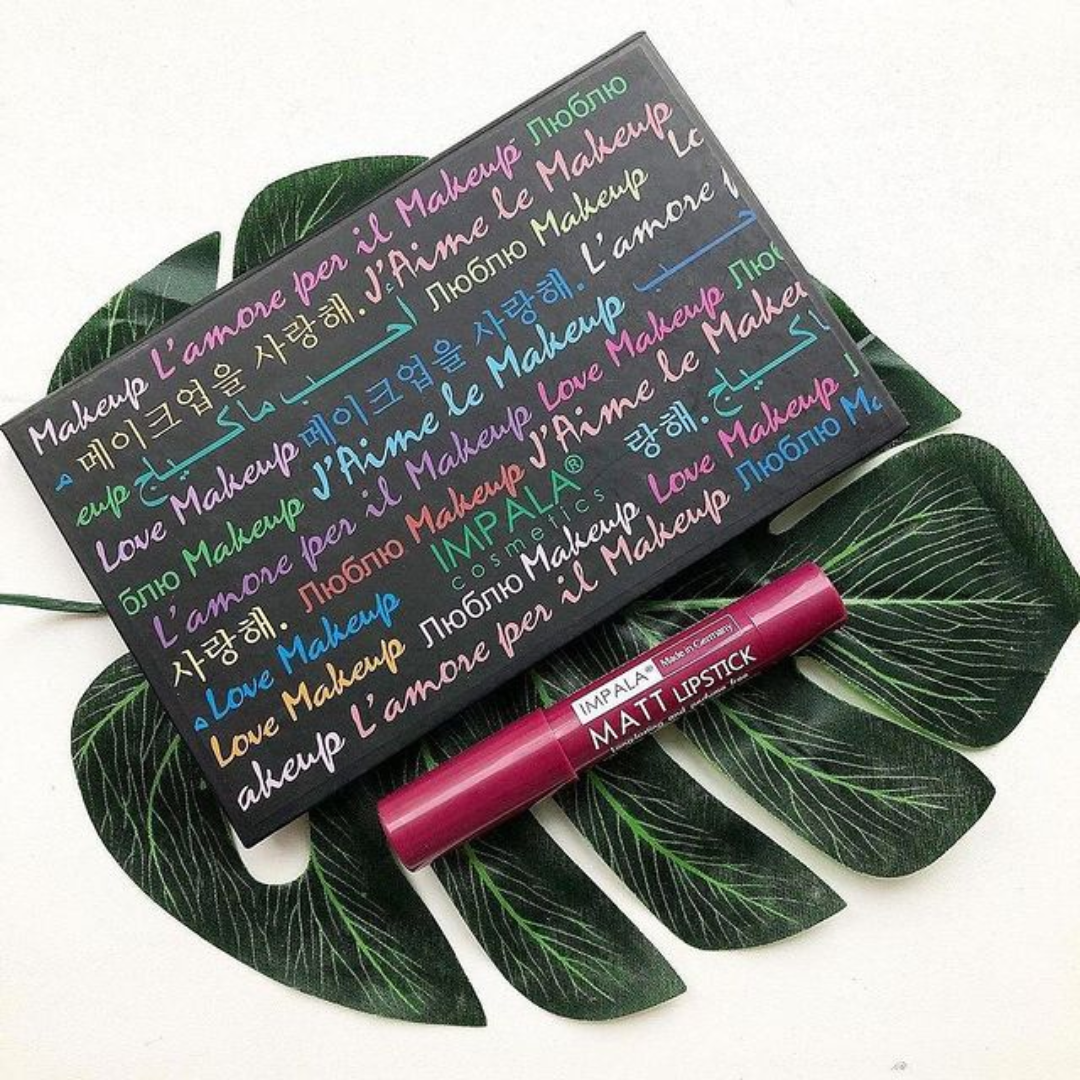 Makeup L'amore per il Makeup Люблю
메이크업을 사랑해. J'Aime le Makeup
eup أحب ماكياج Люблю Makeup
Love Makeup 메이크업을 사랑해. L'amore
блю Makeup J'Aime le Makeup
L'amore per il Makeup Love Makeup Люб
사랑해. Люблю Makeup J'Aime le Makeu
Love Makeup IMPALA® 랑해. كياج
cosmetics
Love Makeup Люблю Makeup Love Makeup
akeup L'amore per il Makeup Люблю Ma
IMPALA® Made in Germany
MATT LIPSTICK